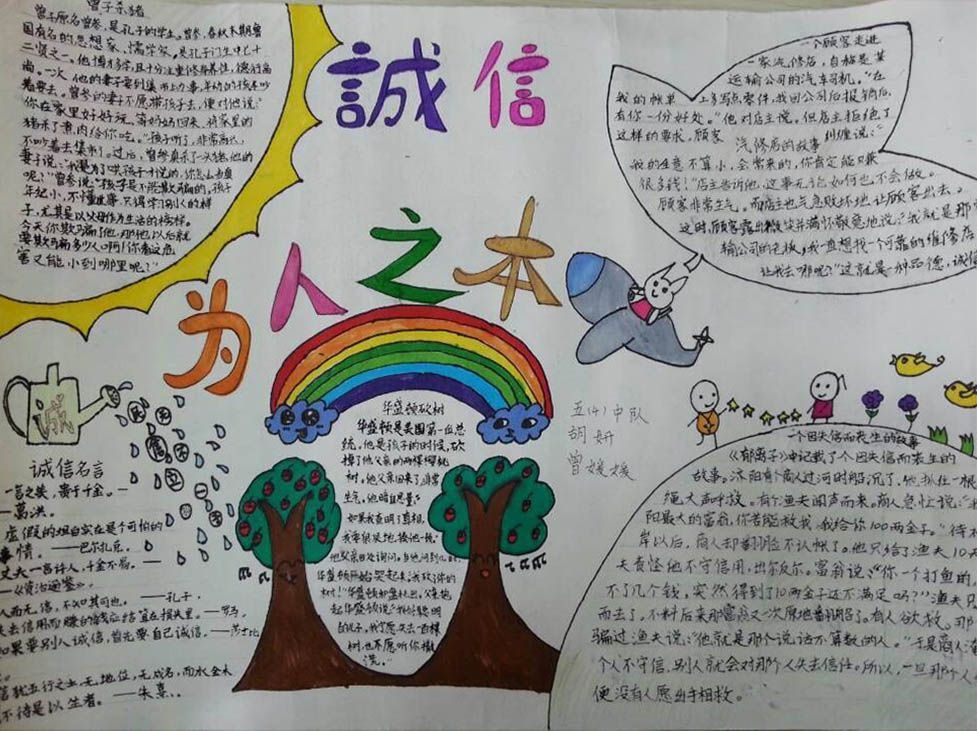 誠信
为人之本
曾子杀猪
曾子原名曾参，是孔子的学生。曾参，春秋末期鲁
国有名的思想家、儒学家，是孔子门生中七十
二贤之一。他博
尚。一次，他的妻子要到集市上办事，年幼的孩子吵
着要去。曾参的妻子不愿带孩子去，便对他说：
你在家里好好玩，等妈妈回来，将家里的
猪杀了煮肉给你吃。”孩子听了，非常高兴，
不吵着去集市了。过后，曾参真杀了一头猪，他的
妻子说：“我是为了哄孩子才说的，你怎么当真
呢！”曾参说：“孩子是不能欺骗的，孩子
年纪小，不懂世事，只得学习别人的样
子，尤其是以父母作为生活的榜样。
今天你欺骗了他，
要欺骗多少人啊！你看这危
害又能小到哪里呢？”
一个顾客走进
一家汽修店，自称是某
运输公司的汽车司机。“在
我的帐单上多写点零件，我回公司后报销后，
有你一份好处。”他对店主说。但店主拒绝了
这样的要求。顾客纠缠说：“
汽修店的故事
我的生意不算小，会常来的，你肯定能赚
很多钱！”店主告诉他，这事无论如何也不会做。
顾客非常生气。而店主也气急败坏地让顾客出去。
这时，顾客露出微笑并满怀敬意地说：“我就是那
输公司的老板，我一直想找一个可靠的维修店
让我去哪呢？”这就是一种品德，诚信
五(4)中队
胡妍
曾媛媛
诚
诚信名言
一言之美，贵于千金。——
——葛洪。
虚假的坦白实在是个可怕的
事情。——巴尔扎克。
丈夫一言许人，千金不易。——
——《资治通鉴》。
人而无信，不知其可也。——孔子。
失去信用而赚的钱应结算在损失里。——
如果要别人诚信，首先要自己诚信。——莎士比
信犹五行之土，无地位，无成名，而水金木
不待是以生者。——朱熹
华盛顿砍树
华盛顿是美国第一位总
统，他是孩子的时候，砍
掉了他父亲的两棵樱桃
树，他父亲回来了，非常
生气，他暗自思量：“
如果我查明了真相，
我要狠狠地揍他一顿。”
华盛顿开始哭起来：“我砍了你的
树！”
起华盛顿说：“我好聪明
的儿子，我宁愿失去一百棵
树，也不愿听你撒
谎。”
一个因失信而丧生的故事
《郁离子》中记载了一个因失信而丧生的
故事。济阳有个商人过河时船沉了，他抓住一根
绳大声呼救。有个渔夫闻声而来。商人急忙说：“
阳最大的富翁，你若能救我，我给你100两金子。”待
岸以后，商人却翻脸不认账了。他只给了渔夫10
夫责怪他不守信用，出尔反尔。富翁说：“你一个打鱼的，
不了几个钱，突然得到了10两金子还不满足吗？”渔夫只
而去了。不料后来那富翁又一次原地翻船了。有人欲救，那
骗过渔夫说：“他就是那个说话不算数的人。”于是商人
个人不守信，别人就会对那个人失去信任。所以，一旦那个人
便没有人愿出手相救。